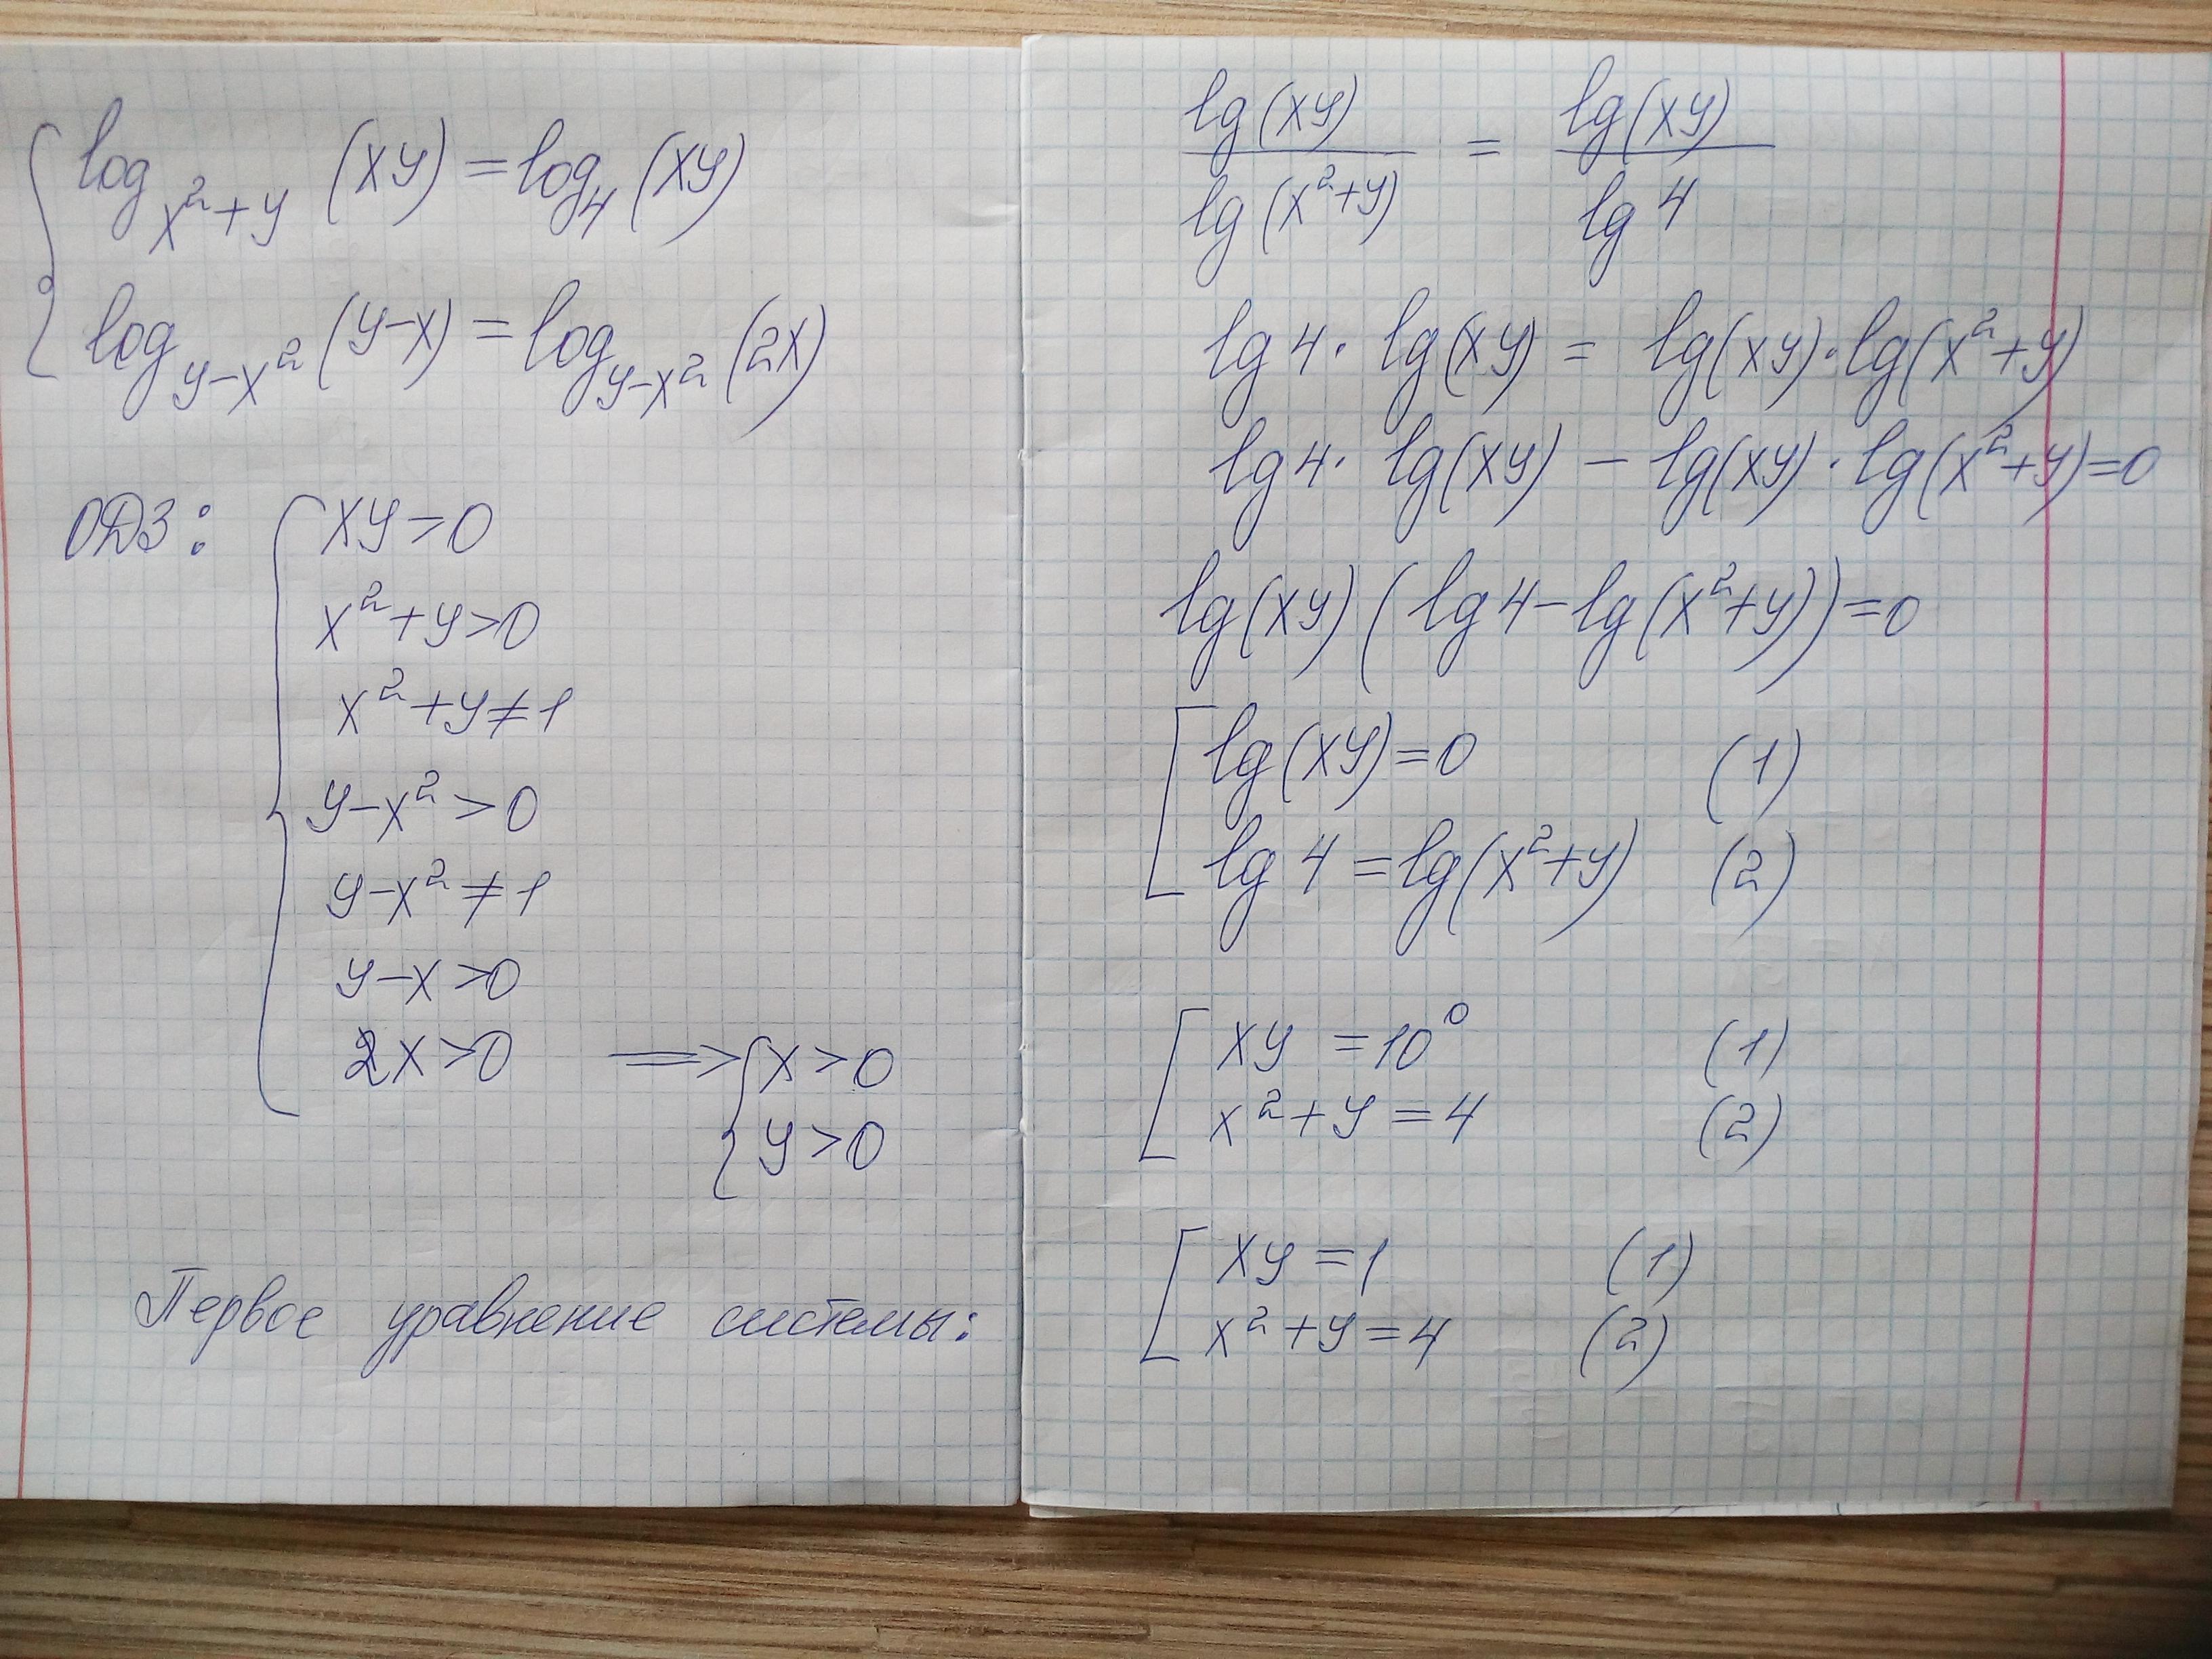 log_{x²+y} (xy) = log_4 (xy)
log_{y-x²} (y-x) = log_{y-x²} (2x)
ОДЗ: xy>0
x²+y>0
x²+y≠1
y-x²>0
y-x²≠1
y-x>0
2x>0 ⟹ { x>0
y>0
Первое уравнение системы:
lg(xy)/lg(x²+y) = lg(xy)/lg4
lg4·lg(xy) = lg(xy)·lg(x²+y)
lg4·lg(xy) - lg(xy)·lg(x²+y)=0
lg(xy)(lg4-lg(x²+y))=0
lg(xy)=0 (1)
lg4=lg(x²+y) (2)
xy=10⁰ (1)
x²+y=4 (2)
xy=1 (1)
x²+y=4 (2)